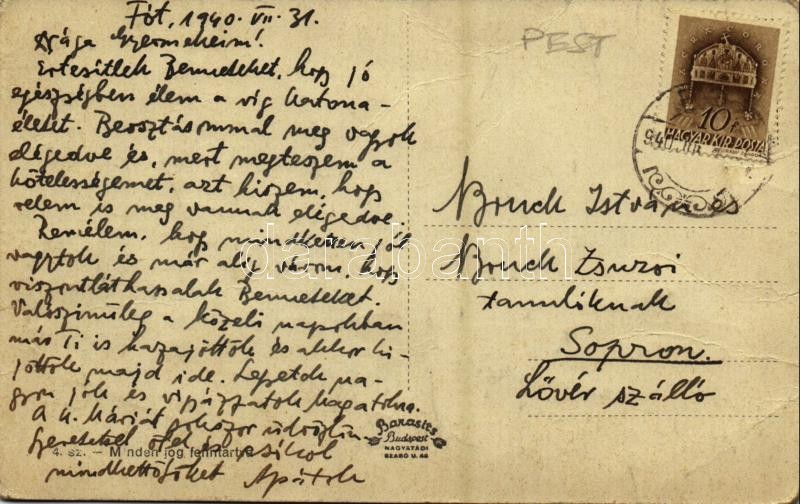 Fót, 1940. VII. 31.
Drága Gyermekeim!
Értesítlek Benneteket, hogy jó
egészségben élem a víg katona-
életet. Beosztásommal meg vagyok
elégedve és, mert megteszem a
kötelességemet, azt hiszem, hogy
velem is meg vannak elégedve.
Remélem, hogy mindketten jól
vagytok és már alig várom, hogy
viszontláthassalak Benneteket.
Valószínűleg a közeli napokban
már Ti is hazajöttök és akkor ki-
jöttök majd ide. Legyetek na-
gyon jók és vigyázzatok magatokra.
A k. Máriát sokszor üdvözlöm
Szeretettel ölel és csókol
mindkettőtöket Apátok
4. sz. — Minden jog fenntartva
Barasits
Budapest
NAGYATÁDI
SZABÓ U. 46
PEST
10 f
MAGYAR KIR. POSTA
940. VII.
Bruck István és
Bruck Zsuzsi
tanulóknak
Sopron.
Lövér szálló
darabanth